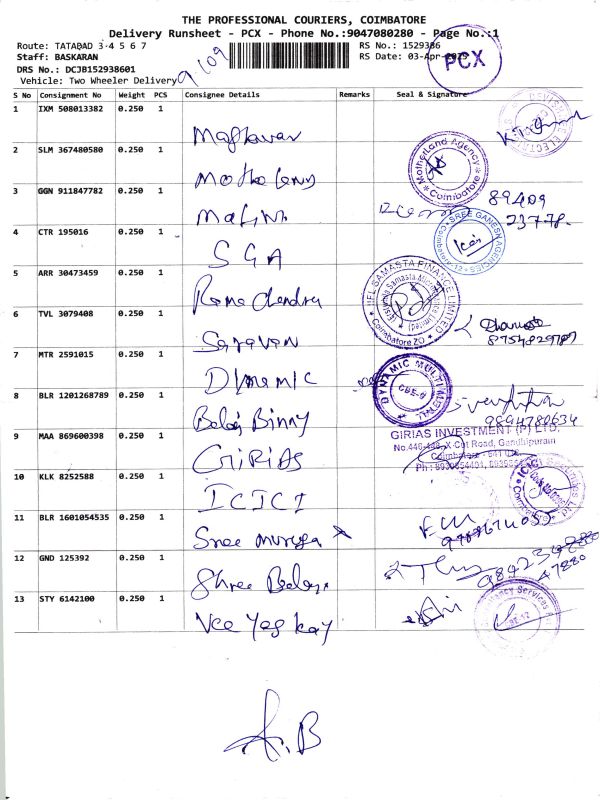 THE PROFESSIONAL COURIERS, COIMBATORE
Delivery Runsheet - PCX - Phone No.:9047080280 - Page No.:1
Route: TATABAD 3 4 5 6 7
RS No.: 1529386
Staff: BASKARAN
RS Date: 03-Apr
PCX
DRS No.: DCJB152938601
Vehicle: Two Wheeler Delivery
S No Consignment No Weight PCS Consignee Details Remarks Seal & Signature
1 IXM 508013382 0.250 1
2 SLM 367480580 0.250 1
MotherLand Agency
Coimbatore
3 GGN 911847782 0.250 1
89409
23778
4 CTR 195016 0.250 1 SGA
SREE GANESH AGENCIES
Coimbatore-12
5 ARR 30473459 0.250 1 Rama Chandra
IIFL SAMASTA FINANCE LIMITED
Coimbatore ZO
6 TVL 3079408 0.250 1 Saravan
8754829787
7 MTR 2591015 0.250 1 Dynamic
DYNAMIC MULTI METAL
CBE-6
8 BLR 1201268789 0.250 1 Balaji Binny
9894780634
9 MAA 869600398 0.250 1 GIRIAS
GIRIAS INVESTMENT (P) LTD.
X-Cut Road, Gandhipuram
10 KLK 8252588 0.250 1 ICICI
11 BLR 1601054535 0.250 1 Sree Muruga
12 GND 125392 0.250 1 Shree Balaji
13 STY 6142100 0.250 1 Vee Yes Kay
A.B